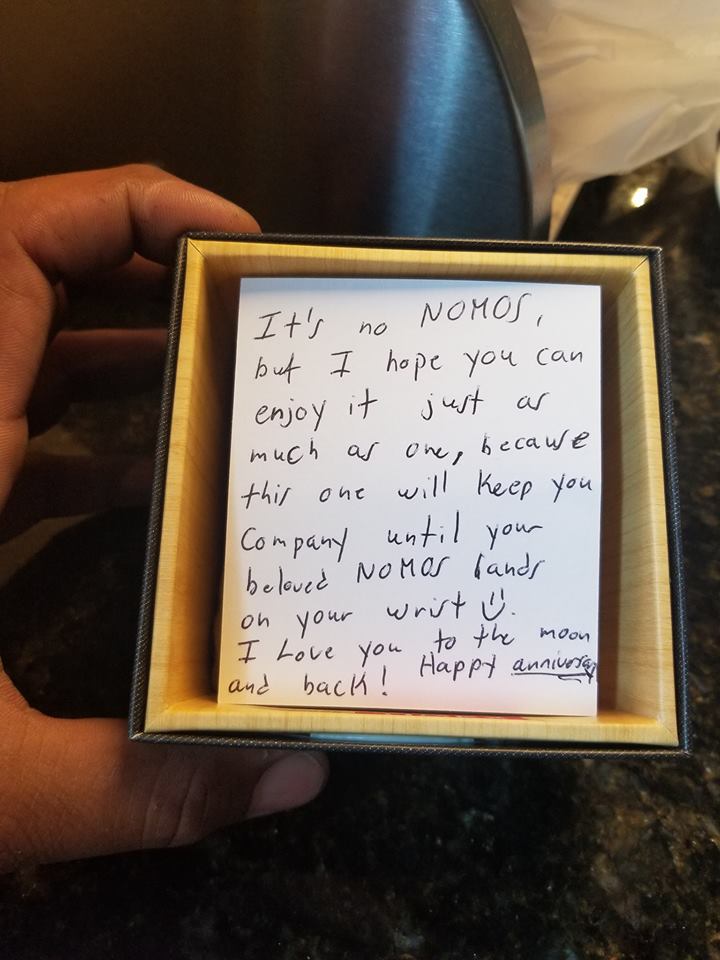 It's no NOMOS,
but I hope you can
enjoy it just as
much as one, because
this one will keep you
company until your
beloved NOMOS lands
on your wrist.
I Love you to the moon
and back! Happy anniversary